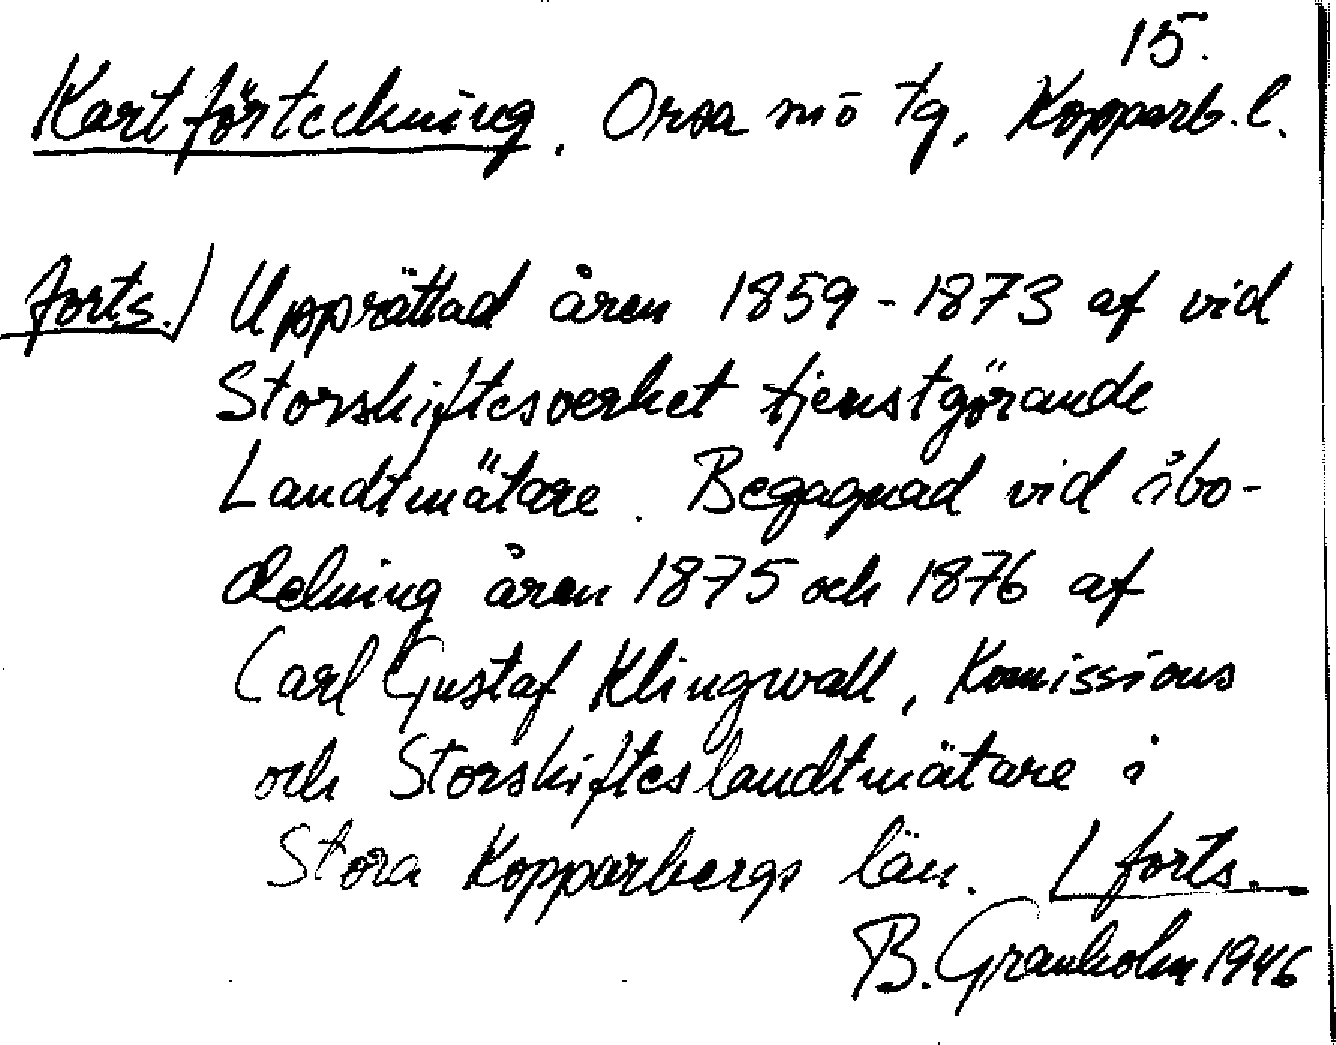 15.
Kartförteckning. Orsa mö tg, Kopparb.l.
forts.) Upprättad åren 1859-1873 af vid
Storskiftesverket tjenstgörande
Landtmätare. Begagnad vid åbo-
delning åren 1875 och 1876 af
Carl Gustaf Klingwall, Komissions
och Storskifteslandtmätare i
Stora Kopparbergs län. (forts.
B. Granholm 1946